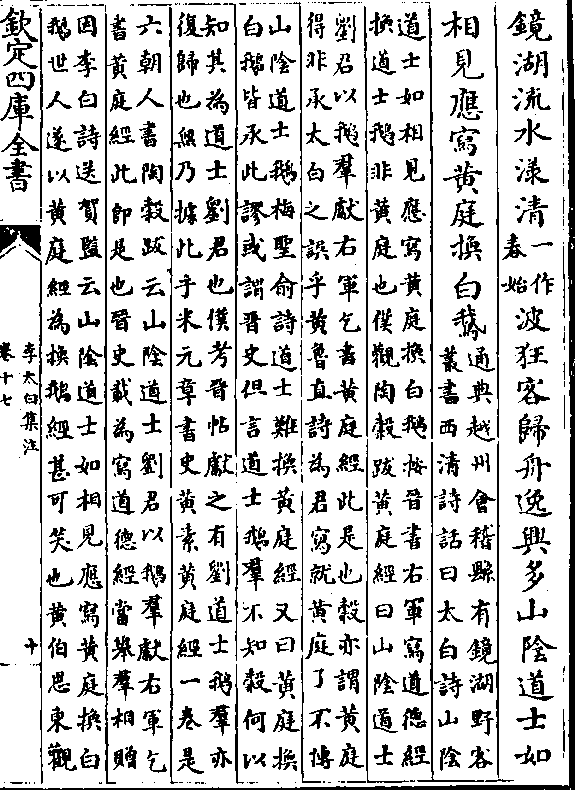 鏡湖流水漾清一作春始波狂客歸舟逸興多山陰道士如
相見應寫黄庭換白鵝通典越州會稽縣有鏡湖野客
叢書西清詩話曰太白詩山陰
道士如相見應寫黄庭換白鵝按晉書右軍寫道德經
換道士鵝非黄庭也僕觀陶穀跋黄庭經曰山陰道士
劉君以鵝羣獻右軍乞書黄庭經此是也穀亦謂黄庭
得非承太白之誤乎黄魯直詩為君寫就黄庭了不博
山陰道士鵝梅聖俞詩道士難換黄庭經又曰黄庭換
白鵝皆承此謬或謂晉史但言道士鵝羣不知穀何以
知其為道士劉君也僕考晉帖獻之有劉道士鵝羣亦
復歸也無乃據此乎米元章書史黄素黄庭經一卷是
六朝人書陶穀跋云山陰道士劉君以鵝羣獻右軍乞
書黄庭經此即是也晉史載為寫道德經當舉羣相贈
因李白詩送賀監云山陰道士如相見應寫黄庭換白
鵝世人遂以黄庭經為換鵝經甚可笑也黄伯思東觀
欽定四庫全書
李太白集注
卷十七
十